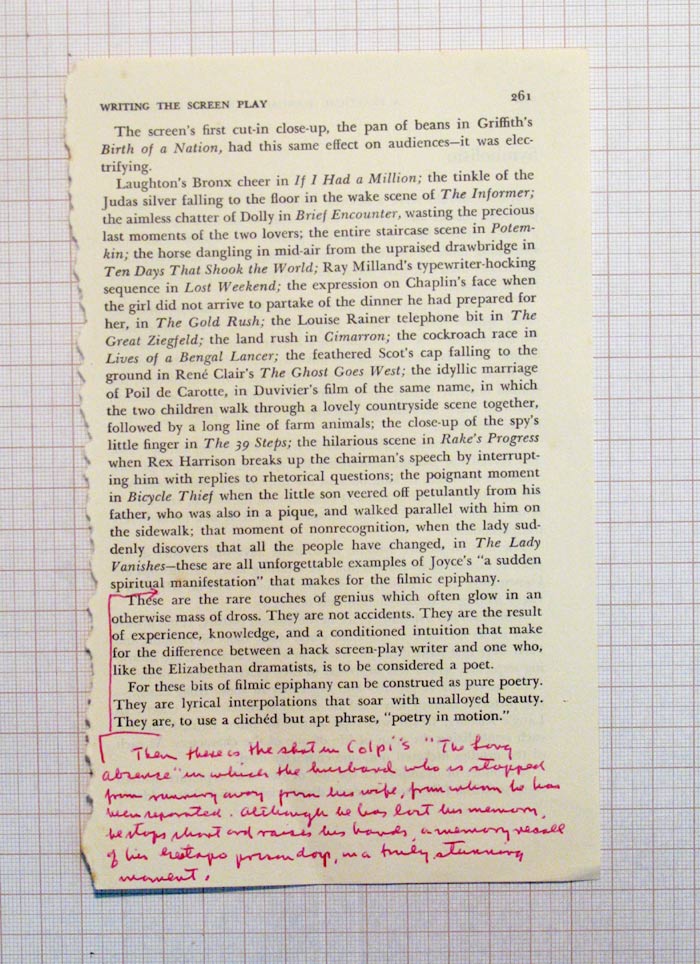 WRITING THE SCREEN PLAY 261
The screen's first cut-in close-up, the pan of beans in Griffith's
Birth of a Nation, had this same effect on audiences—it was elec-
trifying.
Laughton's Bronx cheer in If I Had a Million; the tinkle of the
Judas silver falling to the floor in the wake scene of The Informer;
the aimless chatter of Dolly in Brief Encounter, wasting the precious
last moments of the two lovers; the entire staircase scene in Potem-
kin; the horse dangling in mid-air from the upraised drawbridge in
Ten Days That Shook the World; Ray Milland's typewriter-hocking
sequence in Lost Weekend; the expression on Chaplin's face when
the girl did not arrive to partake of the dinner he had prepared for
her, in The Gold Rush; the Louise Rainer telephone bit in The
Great Ziegfeld; the land rush in Cimarron; the cockroach race in
Lives of a Bengal Lancer; the feathered Scot's cap falling to the
ground in René Clair's The Ghost Goes West; the idyllic marriage
of Poil de Carotte, in Duvivier's film of the same name, in which
the two children walk through a lovely countryside scene together,
followed by a long line of farm animals; the close-up of the spy's
little finger in The 39 Steps; the hilarious scene in Rake's Progress
when Rex Harrison breaks up the chairman's speech by interrupt-
ing him with replies to rhetorical questions; the poignant moment
in Bicycle Thief when the little son veered off petulantly from his
father, who was also in a pique, and walked parallel with him on
the sidewalk; that moment of nonrecognition, when the lady sud-
denly discovers that all the people have changed, in The Lady
Vanishes—these are all unforgettable examples of Joyce's "a sudden
spiritual manifestation" that makes for the filmic epiphany.
These are the rare touches of genius which often glow in an
otherwise mass of dross. They are not accidents. They are the result
of experience, knowledge, and a conditioned intuition that make
for the difference between a hack screen-play writer and one who,
like the Elizabethan dramatists, is to be considered a poet.
For these bits of filmic epiphany can be construed as pure poetry.
They are lyrical interpolations that soar with unalloyed beauty.
They are, to use a clichéd but apt phrase, "poetry in motion."
Then there is the shot in Colpi's "The Long
absence" in which the husband who is stopped
from running away from his wife, from whom he has
been separated. Although he has lost his memory,
he stops short and raises his hands, a memory recall
of his Gestapo prison days, in a truly stunning
moment.